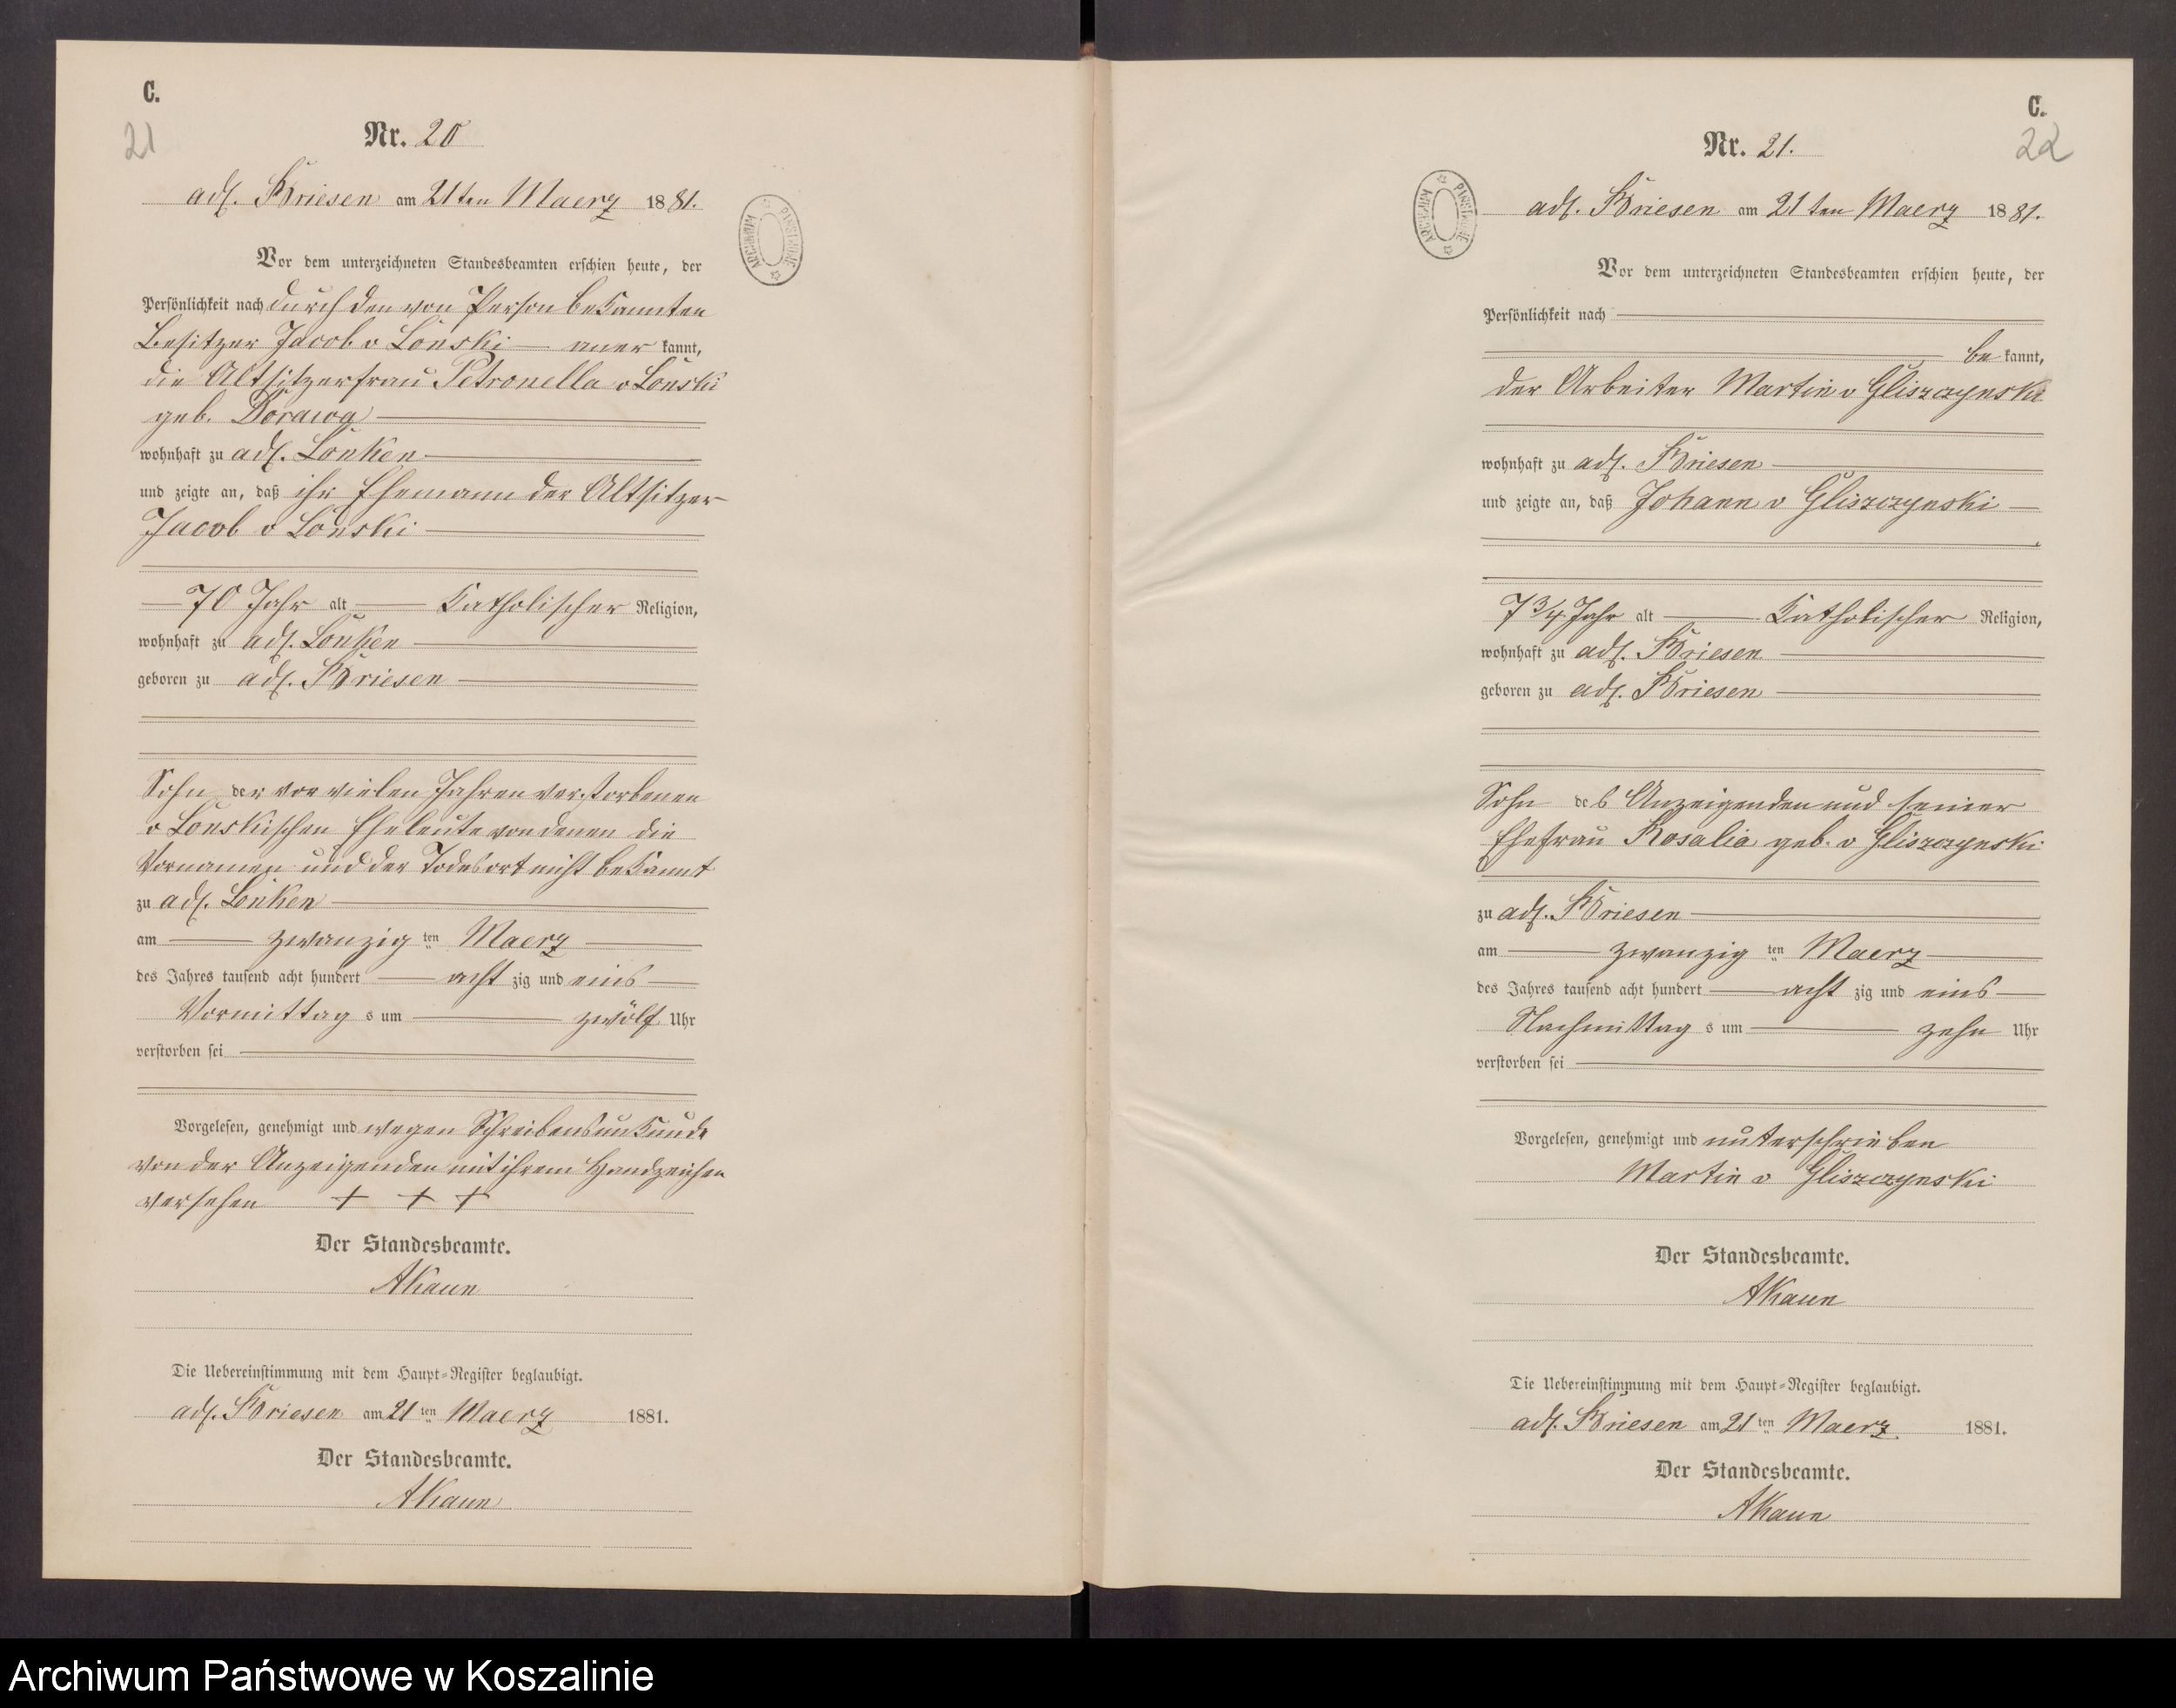 C.
21
Nr. 20
adl. Briesen am 21ten Maerz 1881.
ARCHIWUM PAŃSTWOWE
Vor dem unterzeichneten Standesbeamten erschien heute, der
Persönlichkeit nach durch den von Person bekannten
Besitzer Jacob v Lonski — aner kannt,
die Altsitzerfrau Petronella v Lonski
geb. Dorawa
wohnhaft zu adl. Lonken
und zeigte an, daß ihr Ehemann der Altsitzer
Jacob v Lonski
70 Jahr alt — katholischer Religion,
wohnhaft zu adl. Lonken
geboren zu adl. Briesen
Sohn der vor vielen Jahren verstorbenen
v Lonskischen Eheleute von denen die
Vornamen und der Todesort nicht bekannt
zu adl. Lonken
am — zwanzig ten Maerz
des Jahres tausend acht hundert — acht zig und eins
Vormittag s um — zwölf Uhr
verstorben sei
Vorgelesen, genehmigt und wegen Schreibensunkunde
von der Anzeigenden mit ihrem Handzeichen
versehen + + +
Der Standesbeamte.
AKaun
Die Uebereinstimmung mit dem Haupt-Register beglaubigt.
adl. Briesen am 21 ten Maerz 1881.
Der Standesbeamte.
AKaun
C.
22
Nr. 21.
ARCHIWUM PAŃSTWOWE
adl. Briesen am 21 ten Maerz 1881.
Vor dem unterzeichneten Standesbeamten erschien heute, der
Persönlichkeit nach
be kannt,
der Arbeiter Martin v Gliszczynski
wohnhaft zu adl. Briesen
und zeigte an, daß Johann v Gliszczynski
7 3/4 Jahr alt — katholischer Religion,
wohnhaft zu adl. Briesen
geboren zu adl. Briesen
Sohn des Anzeigenden und seiner
Ehefrau Rosalia geb. v Gliszczynski
zu adl. Briesen
am — zwanzig ten Maerz
des Jahres tausend acht hundert — acht zig und eins
Nachmittag s um — zehn Uhr
verstorben sei
Vorgelesen, genehmigt und unterschrieben
Martin v Gliszczynski
Der Standesbeamte.
AKaun
Die Uebereinstimmung mit dem Haupt-Register beglaubigt.
adl. Briesen am 21 ten Maerz 1881.
Der Standesbeamte.
AKaun
Archiwum Państwowe w Koszalinie